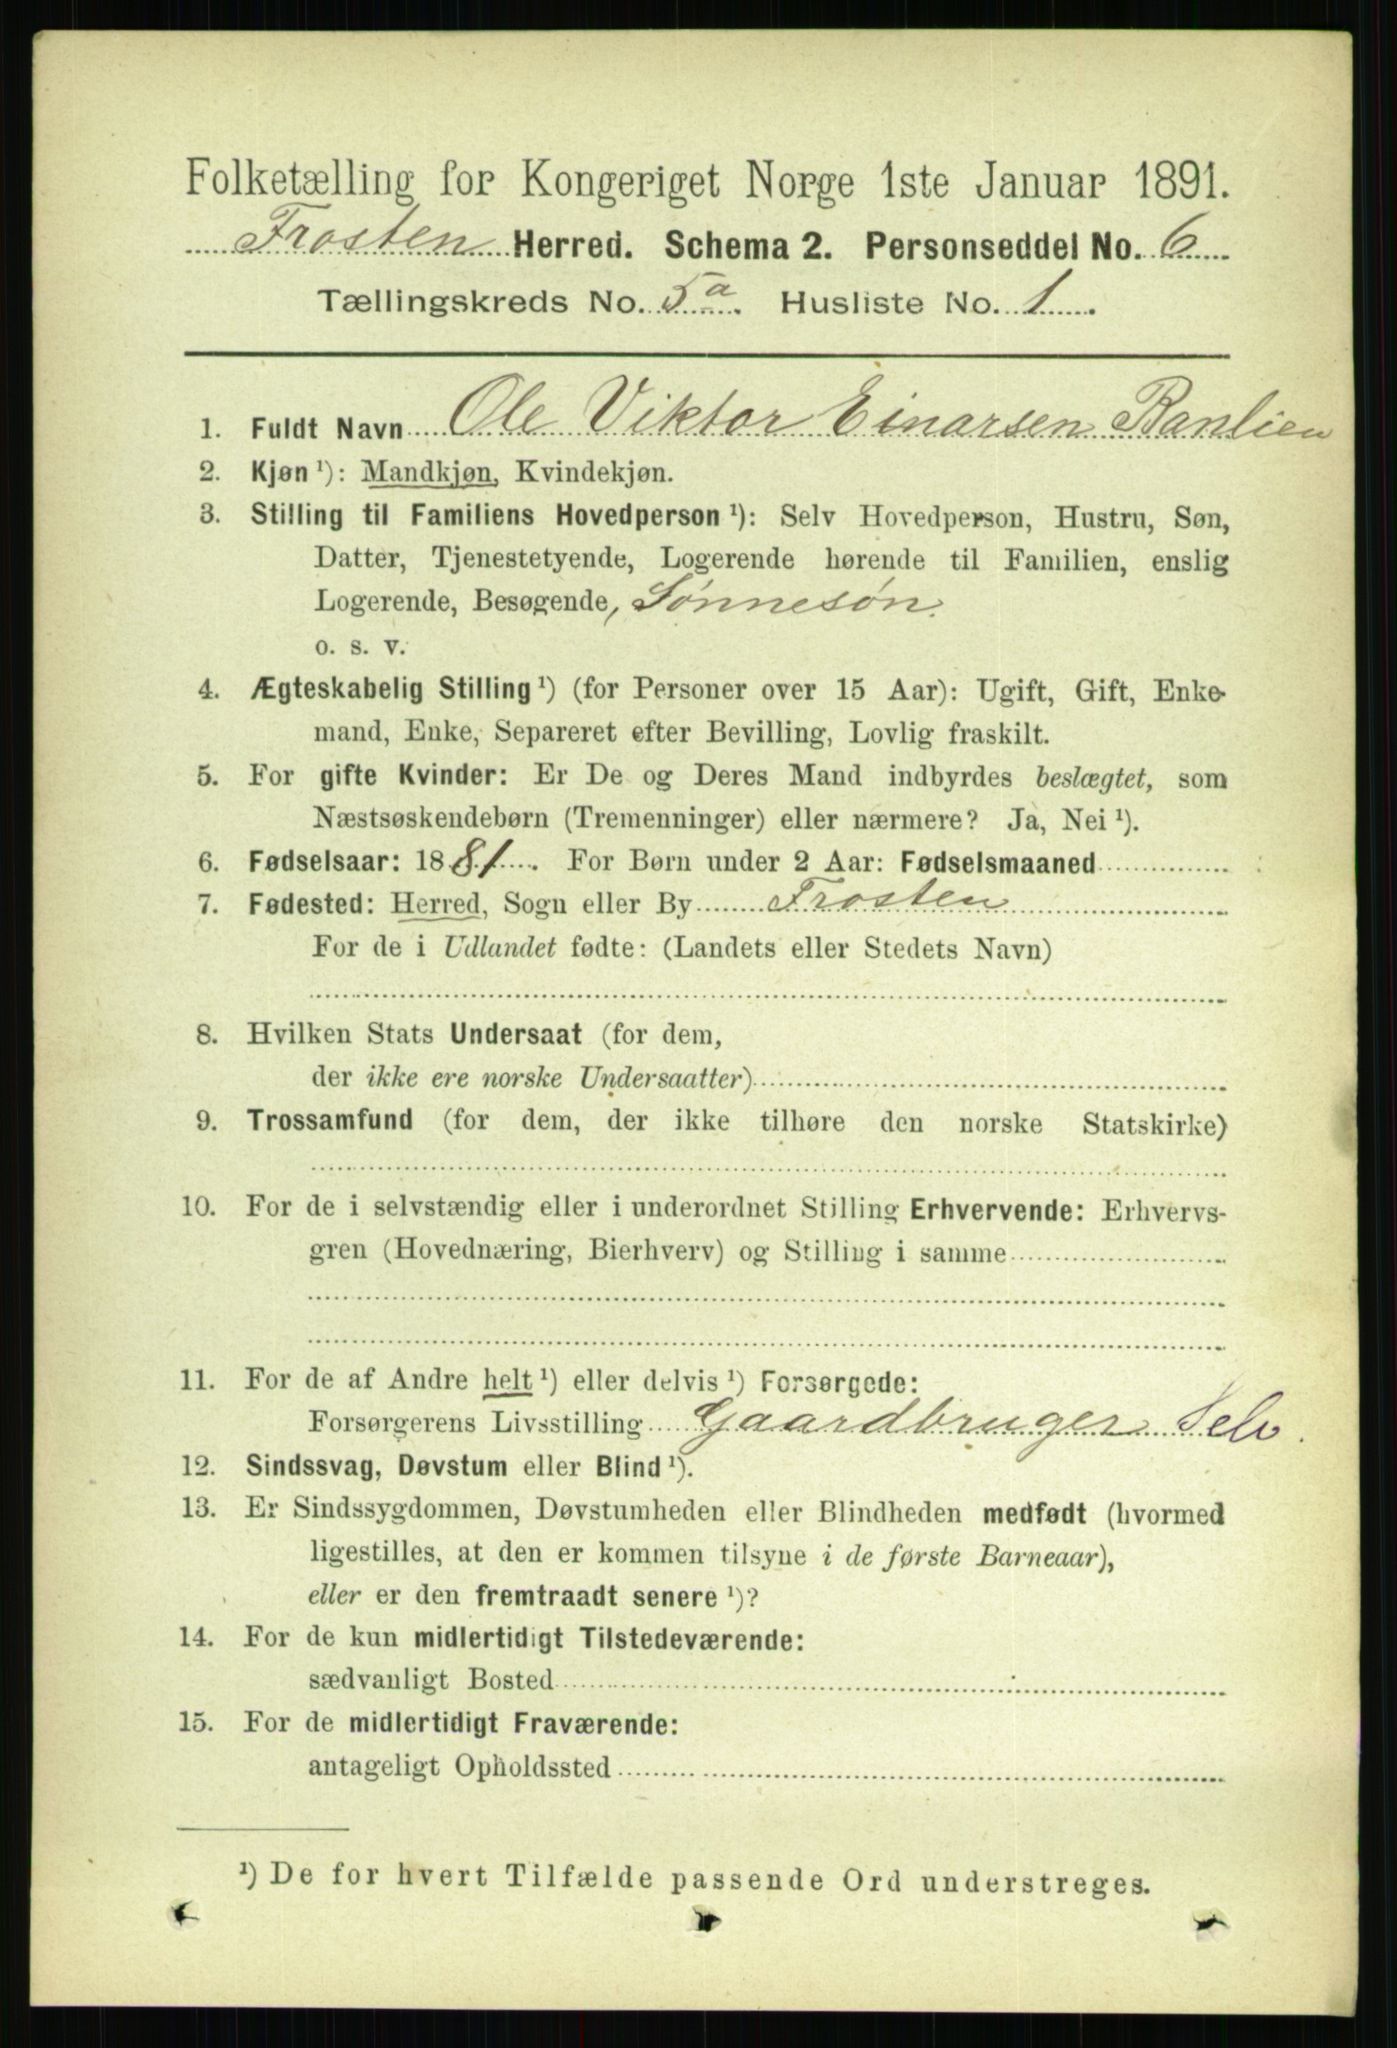 Folketælling for Kongeriget Norge 1ste Januar 1891.
Frosten Herred. Schema 2. Personseddel No. 6
Tællingskreds No. 5a. Husliste No. 1.
1. Fuldt Navn Ole Viktor Einarsen Ranlien
2. Kjøn ¹): Mandkjøn, Kvindekjøn.
3. Stilling til Familiens Hovedperson ¹): Selv Hovedperson, Hustru, Søn,
Datter, Tjenestetyende, Logerende hørende til Familien, enslig
Logerende, Besøgende, Sønnesøn.
o. s. v.
4. Ægteskabelig Stilling ¹) (for Personer over 15 Aar): Ugift, Gift, Enke-
mand, Enke, Separeret efter Bevilling, Lovlig fraskilt.
5. For gifte Kvinder: Er De og Deres Mand indbyrdes beslægtet, som
Næstsøskendebørn (Tremenninger) eller nærmere? Ja, Nei ¹).
6. Fødselsaar: 1881. For Børn under 2 Aar: Fødselsmaaned
7. Fødested: Herred, Sogn eller By Frosten
For de i Udlandet fødte: (Landets eller Stedets Navn)
8. Hvilken Stats Undersaat (for dem,
der ikke ere norske Undersaatter)
9. Trossamfund (for dem, der ikke tilhøre den norske Statskirke)
10. For de i selvstændig eller i underordnet Stilling Erhvervende: Erhvervs-
gren (Hovednæring, Bierhverv) og Stilling i samme
11. For de af Andre helt ¹) eller delvis ¹) Forsørgede:
Forsørgerens Livsstilling Gaardbruger Selv.
12. Sindssvag, Døvstum eller Blind ¹).
13. Er Sindssygdommen, Døvstumheden eller Blindheden medfødt (hvormed
ligestilles, at den er kommen tilsyne i de første Barneaar),
eller er den fremtraadt senere ¹)?
14. For de kun midlertidigt Tilstedeværende:
sædvanligt Bosted
15. For de midlertidigt Fraværende:
antageligt Opholdssted
¹) De for hvert Tilfælde passende Ord understreges.